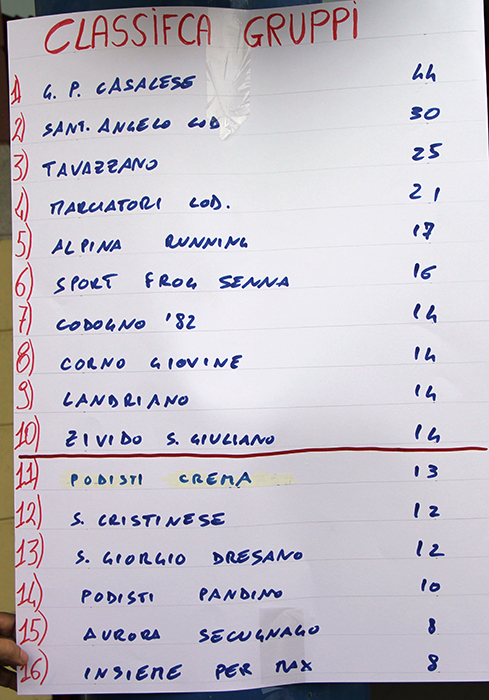 CLASSIFCA GRUPPI
1) G. P. CASALESE 44
2) SANT. ANGELO LOD 30
3) TAVAZZANO 25
4) MARCIATORI LOD. 21
5) ALPINA RUNNING 17
6) SPORT FROG SENNA 16
7) CODOGNO '82 14
8) CORNO GIOVINE 14
9) LANDRIANO 14
10) ZIVIDO S. GIULIANO 14
11) PODISTI CREMA 13
12) S. CRISTINESE 12
13) S. GIORGIO DRESANO 12
14) PODISTI PANDINO 10
15) AURORA SECUGNAGO 8
16) INSIEME PER MAX 8